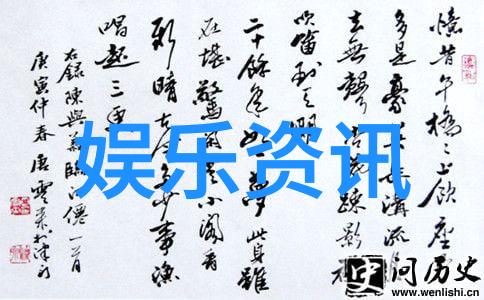 憶昔午橋々上飲座
多是豪英長溝流
去無聲杏花疎影
吹笛到天明
二十餘年如一夢此身雖
在堪驚閒登小閣看
新晴古今多少事漁
唱起三更
右錄陳與義臨江仙一首
庚寅仲春唐雲來於津門
娱乐资讯
问历史
www.wenlishi.cn